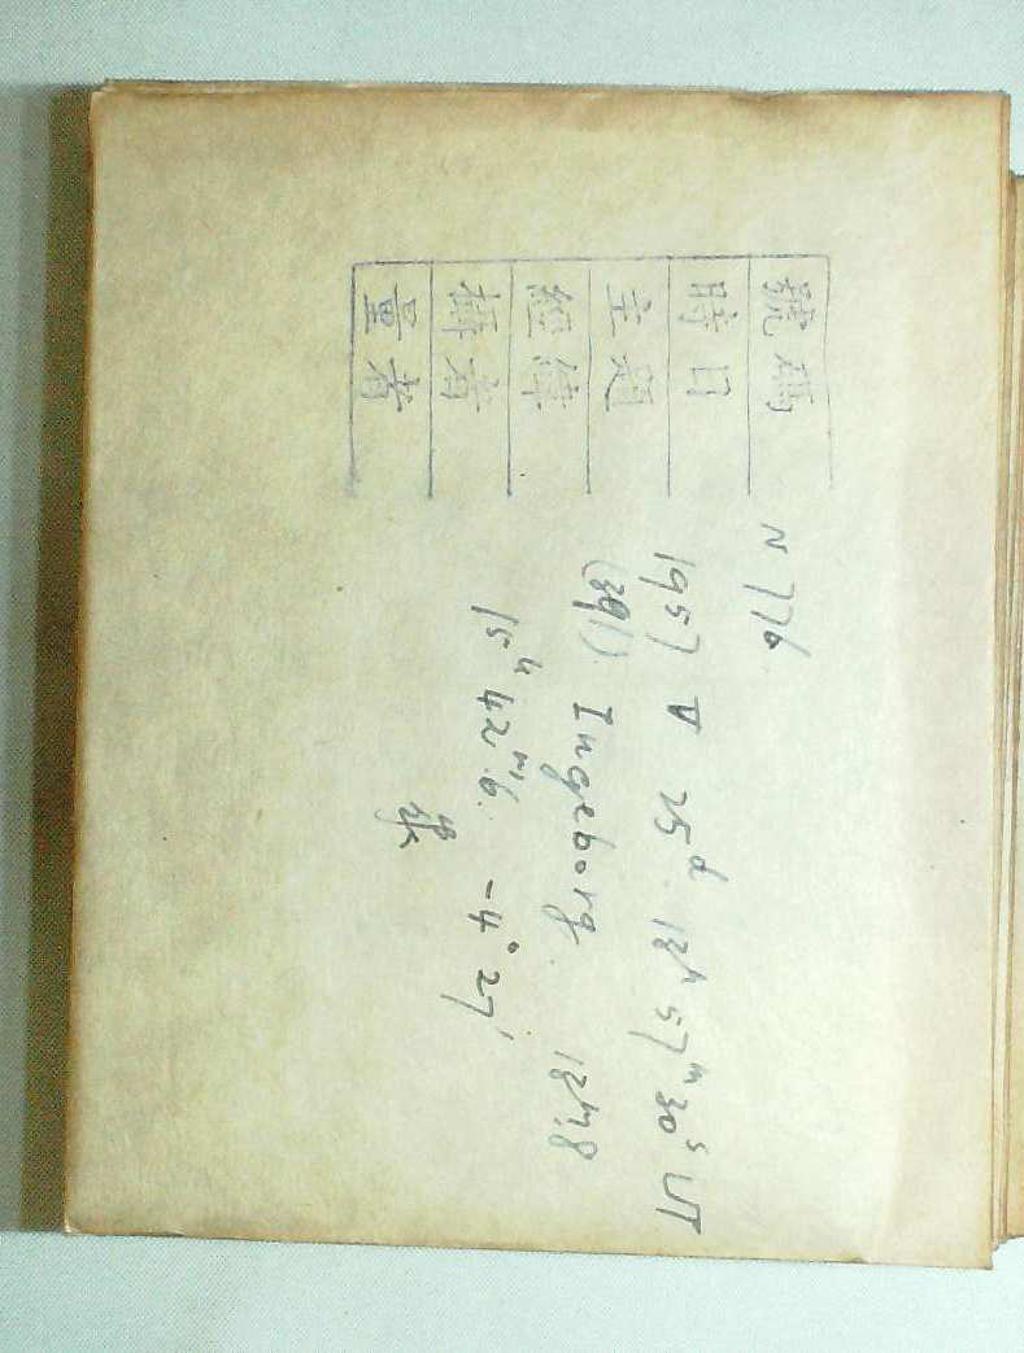 號碼 N 776
時日 1957 V 25d 13h 57m 30s UT
主題 (391) Ingeborg. 13m.8
經緯 15h 42m.6. -4° 27'
攝者 張
量者